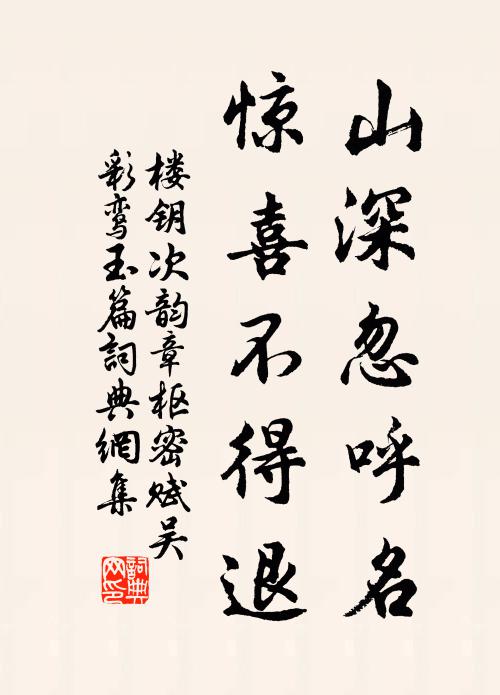 山深忽呼名
惊喜不得退
楼钥次韵章枢密赋吴
彩鸾玉篇詞典網集
詞典
网印